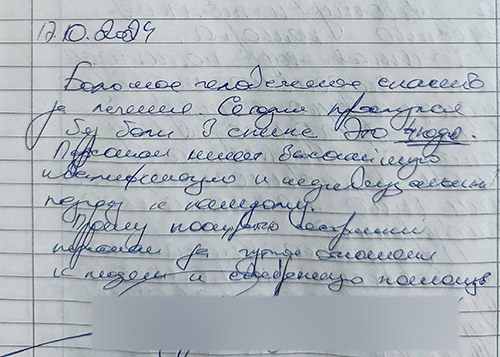 17.10.2024
Большое человеческое спасибо
за лечение. Сегодня проснулся
без боли в спине это чудо.
Персонал имеет высочайшую
квалификацию и индивидуальный
подход к каждому.
Прошу поощрить
персонал за чуткое отношение
к людям и помощь